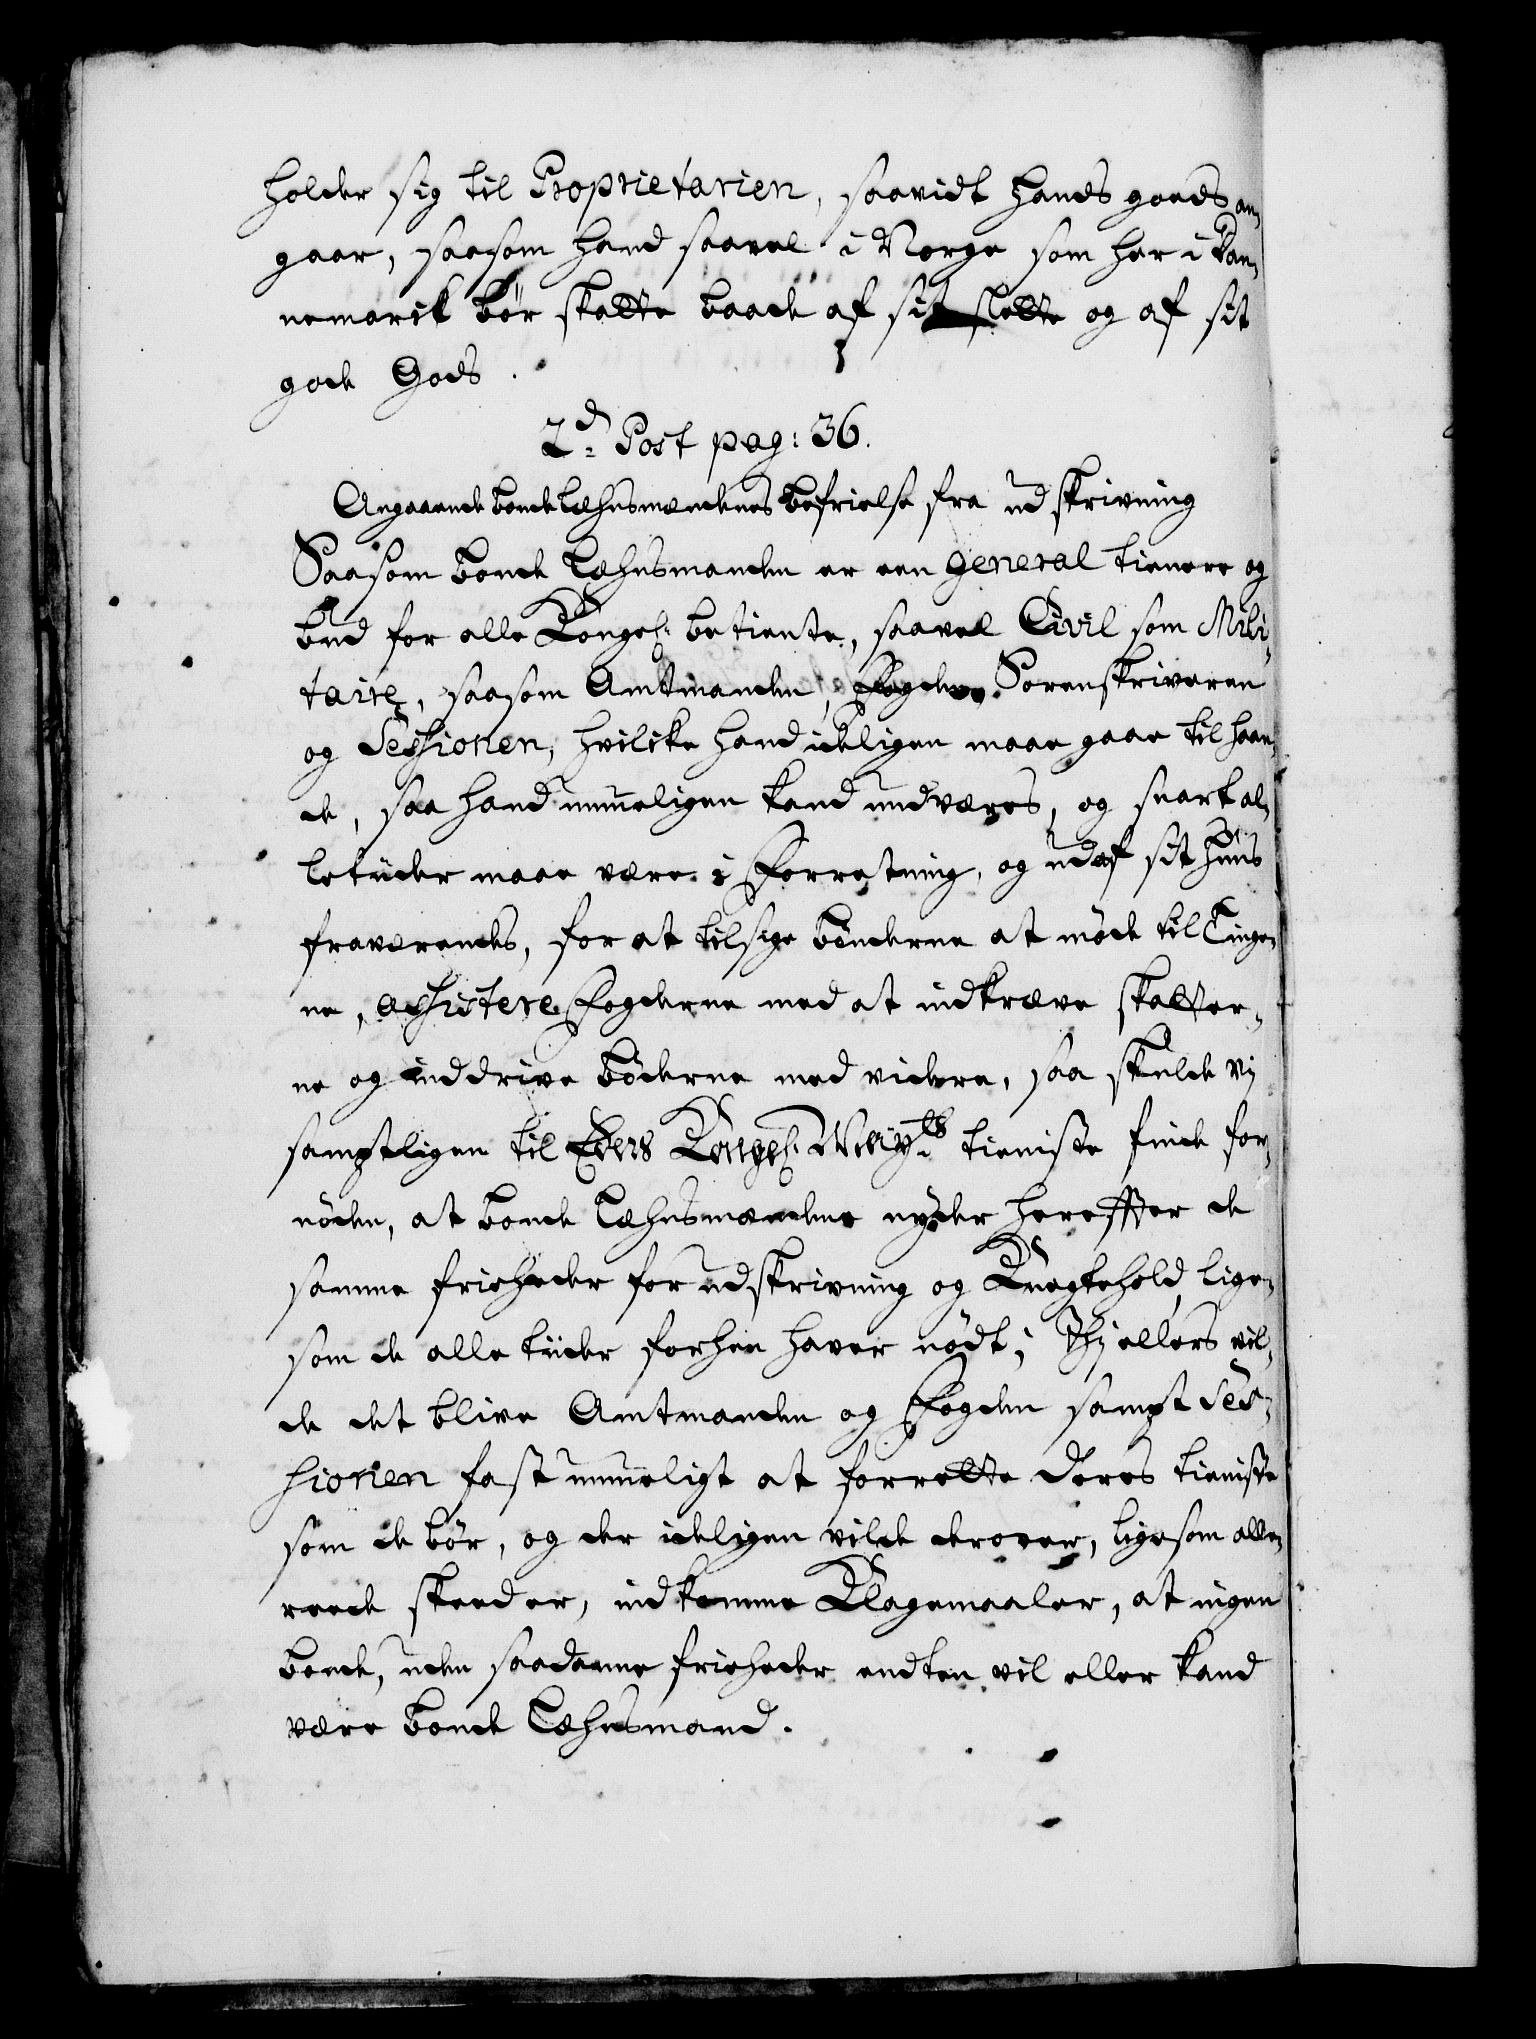 holder sig til Proprietarien, saavidt hands goeds an,
gaar, saasom hand saavel i Norge som her i Dan,
nemarck bør skatte baade af sit slette og af sit
gode Gods.
2d. Post pag: 36.
Angaaende bonde Læhnsmændenes befrielse fra udskrivning
Saasom bonde Læhnsmanden er een general tienere og
bud for alle Kongel: betiente, saavel Civil som Mili,
taire, saasom Amtmanden, Fogden, Sorenskriveren
og Sessionen, hvilcke hand ideligen maae gaae til haan,
de, saa hand umueligen kand undværes, og snart al,
letiider maae være i Forretning, og ud af sit huus
fraværendes, for at tilsige bønderne at møde til Tinge,
ne, assistere Fogderne med at indkræve skatter,
ne og inddrive bøderne med videre, saa skulde vj
samptligen til Eders Kongel: Mayts. tieniste finde for,
nøden, at bonde Læhnsmændene nyder hereffter de
samme friheder for udskrivning og Knegtehold, lige,
som de alle tiider forhen haver nødt; Thj ellers vil,
de det blive Amtmanden og Fogden sampt Ses,
sionen fast umueligt at forrette deres tieniste
som de bør, og der ideligen vilde derover, ligesom alle,
reede skeeder, indkomme Klagemaaler, at ingen
bonde, uden saadanne friheder endten vil eller kand
være bonde Læhnsmand.